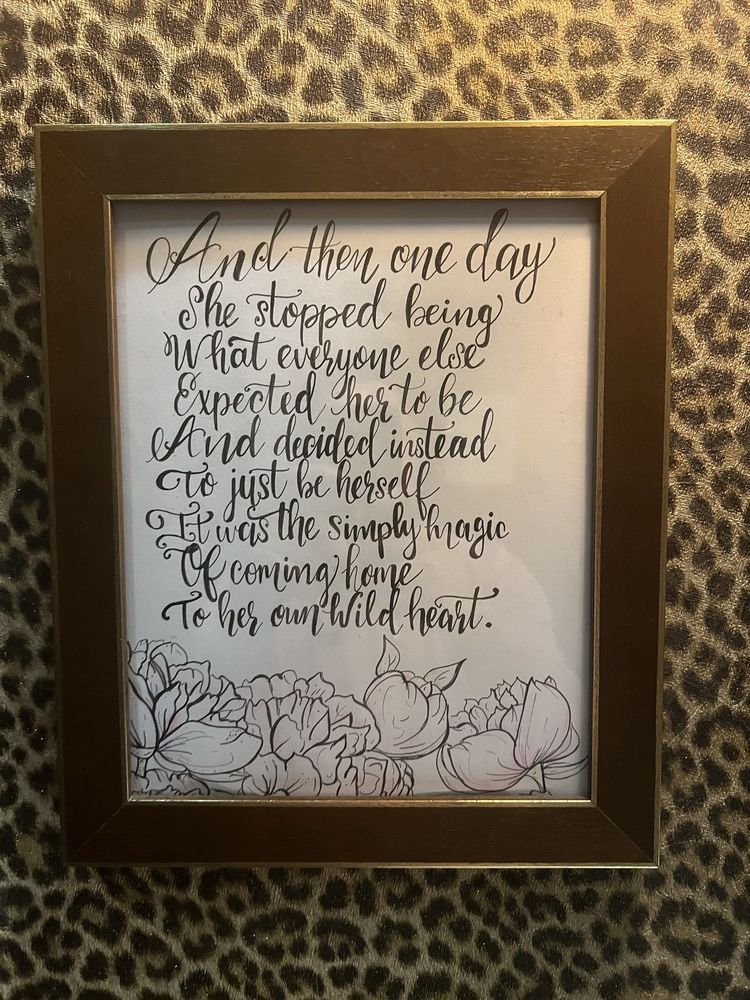 And then one day
She stopped being
What everyone else
Expected her to be
And decided instead
To just be herself
It was the simply magic
Of coming home
To her own Wild heart.